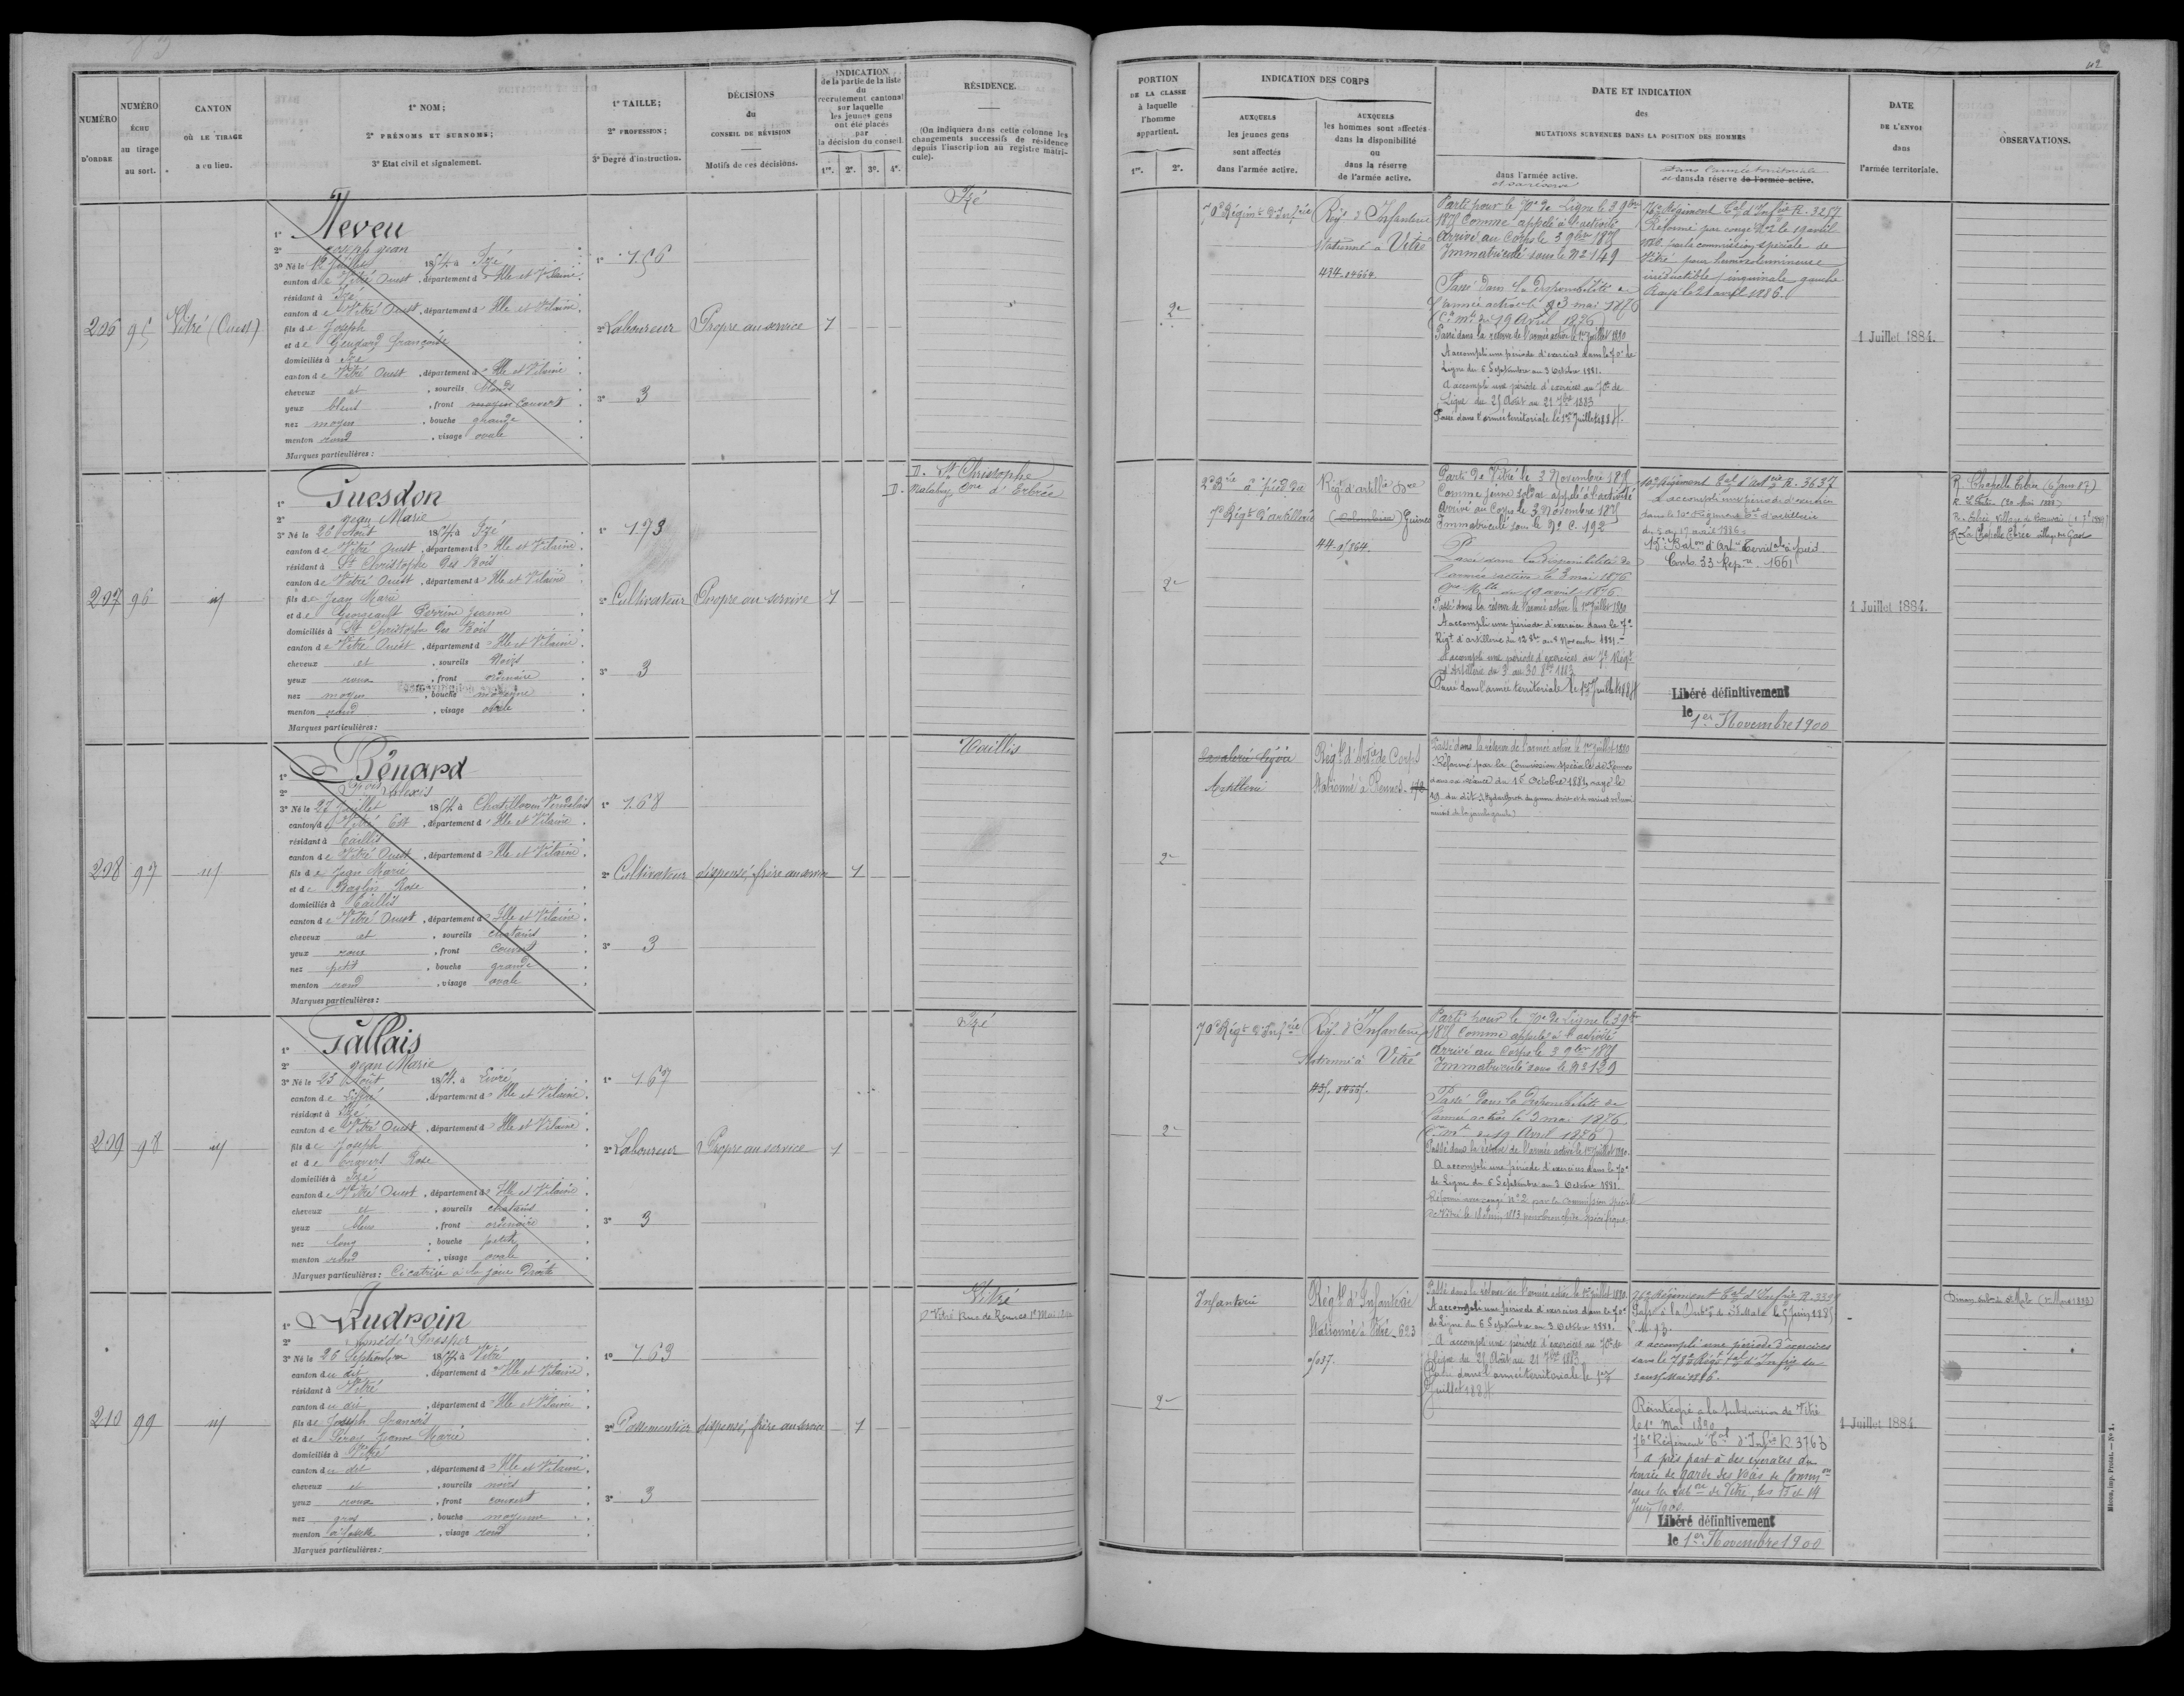 NUMÉRO
D'ORDRE
NUMÉRO
ÉCHU
au tirage
au sort.
CANTON
OÙ LE TIRAGE
a eu lieu.
1° NOM ;
2° PRÉNOMS ET SURNOMS ;
3° Etat civil et signalement.
1° TAILLE ;
2° PROFESSION ;
3° Degré d'instruction.
DÉCISIONS
du
CONSEIL DE RÉVISION
Motifs de ces décisions.
INDICATION
de la partie de la liste
du
recrutement cantonal
sur laquelle
les jeunes gens
ont été placés
par
la décision du conseil.
1re. 2e. 3e. 4e.
RÉSIDENCE.
(On indiquera dans cette colonne les
changements successifs de résidence
depuis l'inscription au registre matri-
cule).
206
95
Vitré (Ouest)
1° Neveu
2° Joseph Jean
3° Né le 12 Juillet 1854 à Izé
canton de Vitré Ouest, département d'Ille et Vilaine.
résidant à Izé
canton de Vitré Ouest, département d'Ille et Vilaine.
fils de Joseph
et de Françoise
domiciliés à Izé
canton de Vitré Ouest, département d'Ille et Vilaine.
cheveux et, sourcils blonds
yeux bleus, front moyen couvert
nez moyen, bouche grande
menton rond, visage ovale
Marques particulières :
1° 1.56
2° Laboureur
3° 3
Propre au service
1
Izé
207
96
id
1° Guesdon
2° Jean Marie
3° Né le 26 Août 1854 à Izé
canton de Vitré Ouest, département d'Ille et Vilaine
résidant à St Christophe des Bois
canton de Vitré Ouest, département d'Ille et Vilaine
fils de Jean Marie
et de Georgeault Perrine Jeanne
domiciliés à St Christophe des Bois
canton de Vitré Ouest, département d'Ille et Vilaine
cheveux et, sourcils noirs
yeux roux, front ordinaire
nez moyen, bouche moyenne
menton rond, visage ovale
Marques particulières :
1° 1.73
2° Cultivateur
3° 3
Propre au service
1
D. St Christophe
D. Malabry Cne d'Erbrée
208
97
id
1° Pénard
2° Fçois Alexis
3° Né le 27 Juillet 1854 à Chatillon en Vendelais
canton de Vitré Est, département d'Ille et Vilaine.
résidant à Taillis
canton de Vitré Ouest, département d'Ille et Vilaine.
fils de Jean Marie
et de Rose
domiciliés à Taillis
canton de Vitré Ouest, département d'Ille et Vilaine.
cheveux et, sourcils chatains
yeux roux, front couvert
nez petit, bouche grande
menton rond, visage ovale
Marques particulières :
1° 1.68
2° Cultivateur
3° 3
dispensé, frère au service
1
Taillis
209
98
id
1° Gallais
2° Jean Marie
3° Né le 23 Août 1854 à Livré
canton de Liffré, département d'Ille et Vilaine.
résidant à Izé
canton de Vitré Ouest, département d'Ille et Vilaine.
fils de Joseph
et de Rose
domiciliés à Izé
canton de Vitré Ouest, département d'Ille et Vilaine
cheveux et, sourcils chatains
yeux bleus, front ordinaire
nez long, bouche petite
menton rond, visage ovale
Marques particulières : Cicatrice à la joue droite
1° 1.67
2° Laboureur
3° 3
Propre au service
1
Izé
210
99
id
1° Audroin
2° Amédé Prosper
3° Né le 26 Septembre 1854 à Vitré
canton du dit, département d'Ille et Vilaine
résidant à Vitré
canton du dit, département d'Ille et Vilaine
fils de Joseph François
et de Jeanne Marie
domiciliés à Vitré
canton du dit, département d'Ille et Vilaine
cheveux et, sourcils noirs
yeux roux, front couvert
nez gros, bouche moyenne
menton à fossette, visage rond
Marques particulières :
1° 1.63
2° Passementier
3° 3
dispensé, frère au service
1
Vitré
D Vitré Rue de Rennes 1er Mai 1890
PORTION
DE LA CLASSE
à laquelle
l'homme
appartient.
1re. 2e.
INDICATION DES CORPS
AUXQUELS
les jeunes gens
sont affectés
dans l'armée active.
AUXQUELS
les hommes sont affectés
dans la disponibilité
ou
dans la réserve
de l'armée active.
DATE ET INDICATION
des
MUTATIONS SURVENUES DANS LA POSITION DES HOMMES
dans l'armée active.
et sa réserve
Dans l'armée territoriale
et dans la réserve de l'armée active.
DATE
DE L'ENVOI
dans
l'armée territoriale.
OBSERVATIONS.
42
2e
70e Régimt d'Infrie
Régt d'Infanterie
Stationné à Vitré
434.
Parti pour le 70e de Ligne le 3 9bre
1875 Comme appelé à l'activité
Arrivé au Corps le 3 9bre 1875
Immatriculé sous le No 149
Passé dans la disponibilité de
l'armée active le 3 mai 1876
(Cre Mlle du 19 Avril 1876)
Passé dans la réserve de l'armée active le 1er Juillet 1880
A accompli une période d'exercices dans le 70e de
Ligne du 6 Septembre au 3 Octobre 1881.
A accompli une période d'exercices au 70e de
Ligne du 25 Août au 21 7bre 1883
Passé dans l'armée territoriale le 1er Juillet 1884.
76e Régiment Tal d'Infrie R. 3257
Réformé par congé No 2 le 19 avril
1886 par la commission spéciale de
Vitré pour hernie volumineuse
irréductible inguinale gauche
Rayé le 21 avril 1886.
1 Juillet 1884.
2e
2e Bie à pied du
7e Régt d'artillerie
Régt d'artillie
(Colombière)
44.
Parti de Vitré le 3 Novembre 1875
Comme jeune soldat appelé à l'activité
Arrivé au Corps le 3 Novembre 1875
Immatriculé sous le No C. 192
Passé dans la Disponibilité de
l'armée active le 3 mai 1876
Cre Mlle du 19 avril 1876.
Passé dans la réserve de l'armée active le 1er Juillet 1880
A accompli une période d'exercices dans le 7e
Régt d'artillerie du 12 8bre au 8 Novembre 1881.
A accompli une période d'exercices au 7e Régt
d'Artillerie du 3 au 30 8bre 1883
Passé dans l'armée territoriale le 1er Juillet 1884
10e Régiment Tal d'Artrie R. 3637
A accompli une période d'exercices
dans le 10e Régiment Tal d'artillerie
du 5 au 17 avril 1886.
Baton d'Arte Territale à pied
Conle 33 Repre 1661
Libéré définitivement
le 1er Novembre 1900
1 Juillet 1884.
R. Chapelle Erbrée
2e
Cavalerie légère
Artillerie
Régt d'Artie de Corps
Stationné à Rennes.
Passé dans la réserve de l'armée active le 1er Juillet 1880
Réformé par la Commission spéciale de Rennes
dans sa séance du 15 Octobre 1881, rayé le
2e
70e Régt d'Infrie
Régt d'Infanterie
Stationné à Vitré
435.
Parti pour le 70e de Ligne le 3 9bre
1875 Comme appelé à l'activité
Arrivé au Corps le 3 9bre 1875
Immatriculé sous le No 129
Passé dans la Disponibilité de
l'armée active le 3 mai 1876
(Cre Mlle du 19 Avril 1876)
Passé dans la réserve de l'armée active le 1er Juillet 1880.
A accompli une période d'exercices dans le 70e
de Ligne du 6 Septembre au 3 Octobre 1881.
Réformé par congé No 2 par la Commission spéciale
de Vitré
2e
Infanterie
Régt d'Infanterie
Stationné à Vitré
Passé dans la réserve de l'armée active le 1er Juillet 1880.
A accompli une période d'exercices dans le 70e
de Ligne du 6 Septembre au 3 Octobre 1881.
A accompli une période d'exercices au 70e de
Ligne du 25 Août au 21 7bre 1883
Passé dans l'armée territoriale le 1er
Juillet 1884
76e Régiment Tal d'Infrie
Passé à la Subon de St Malo
A accompli une période d'exercices
dans le 78e Régt Tal d'Infrie du
Mai 1886.
Réintégré à la Subdivision de Vitré
le 1er Mai 1890
76e Régiment Tal d'Infie R 3763
a pris part à des exercices du
service de garde des voies de Common
dans la Subon de Vitré, les 13 et 14
Juin 1900
Libéré définitivement
le 1er Novembre 1900
1 Juillet 1884.
Mâcon, imp. Protat. — No 1.